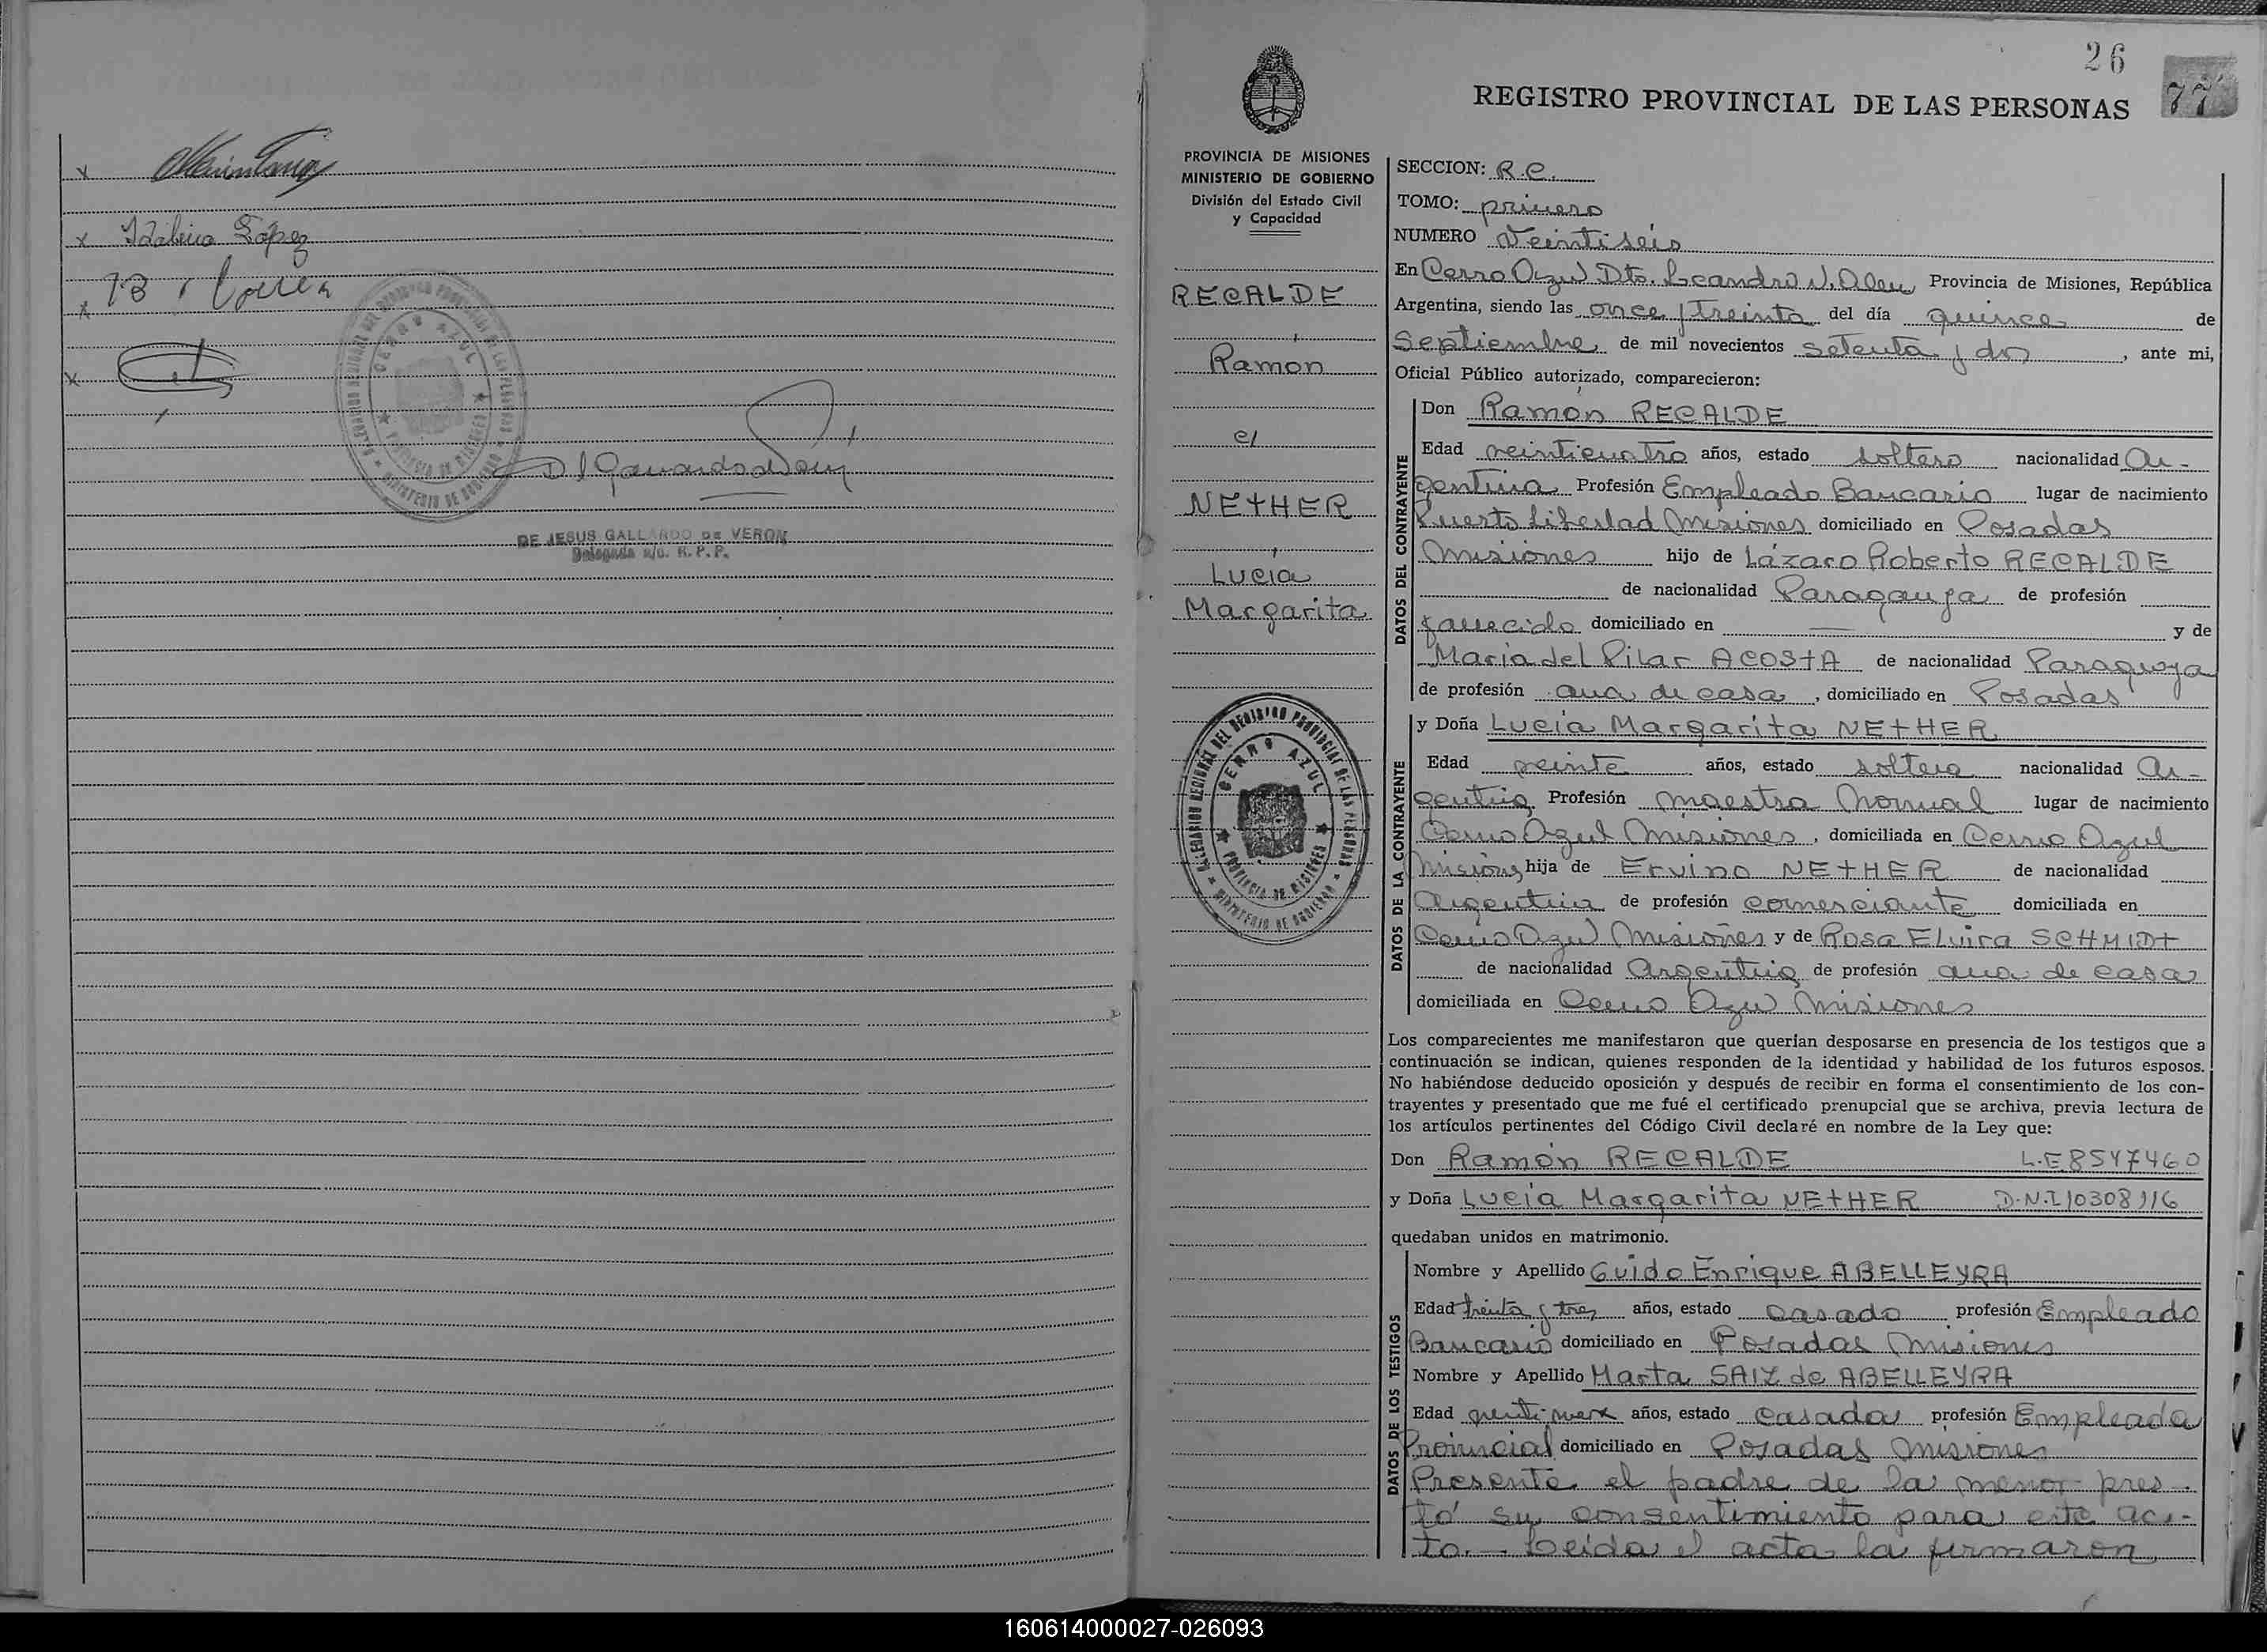 x
x López
x
x
CERRO AZUL
DE JESUS GALLARDO DE VERON
Delegada a/c. R.P.P.
26
77
REGISTRO PROVINCIAL DE LAS PERSONAS
PROVINCIA DE MISIONES
MINISTERIO DE GOBIERNO
División del Estado Civil
y Capacidad
RECALDE
Ramón
c/
NETHER
Lucía
Margarita
CERRO AZUL
PROVINCIA DE MISIONES
MINISTERIO DE GOBIERNO
SECCION: R.C.
TOMO: primero
NUMERO Veintiseis
En Cerro Azul Dto. Leandro N. Alem Provincia de Misiones, República
Argentina, siendo las once y treinta del día quince de
Septiembre de mil novecientos setenta y dos, ante mi,
Oficial Público autorizado, comparecieron:
DATOS DEL CONTRAYENTE
Don Ramón RECALDE
Edad veinticuatro años, estado soltero nacionalidad Ar-
gentina Profesión Empleado Bancario lugar de nacimiento
Puerto Libertad Misiones domiciliado en Posadas
Misiones hijo de Lázaro Roberto RECALDE
de nacionalidad Paraguaya de profesión
fallecido domiciliado en — y de
María del Pilar ACOSTA de nacionalidad Paraguaya
de profesión ama de casa, domiciliado en Posadas
DATOS DE LA CONTRAYENTE
y Doña Lucía Margarita NETHER
Edad veinte años, estado soltera nacionalidad Ar-
gentina Profesión maestra Normal lugar de nacimiento
Cerro Azul Misiones, domiciliada en Cerro Azul
Misiones hija de Ervino NETHER de nacionalidad
Argentina de profesión comerciante domiciliada en
Cerro Azul Misiones y de Rosa Elvira SCHMIDT
de nacionalidad Argentina de profesión ama de casa
domiciliada en Cerro Azul Misiones
Los comparecientes me manifestaron que querían desposarse en presencia de los testigos que a
continuación se indican, quienes responden de la identidad y habilidad de los futuros esposos.
No habiéndose deducido oposición y después de recibir en forma el consentimiento de los con-
trayentes y presentado que me fué el certificado prenupcial que se archiva, previa lectura de
los artículos pertinentes del Código Civil declaré en nombre de la Ley que:
Don Ramón RECALDE L.E 8547460
y Doña Lucía Margarita NETHER D.N.I 10308116
quedaban unidos en matrimonio.
DATOS DE LOS TESTIGOS
Nombre y Apellido Guido Enrique ABELLEYRA
Edad treinta y tres años, estado casado profesión Empleado
Bancario domiciliado en Posadas Misiones
Nombre y Apellido Marta SAIZ de ABELLEYRA
Edad años, estado casada profesión Empleada
Provincial domiciliado en Posadas Misiones
Presente el padre de la menor pres-
tó su consentimiento para este ac-
to.— Leida el acta la firmaron
160614000027-026093